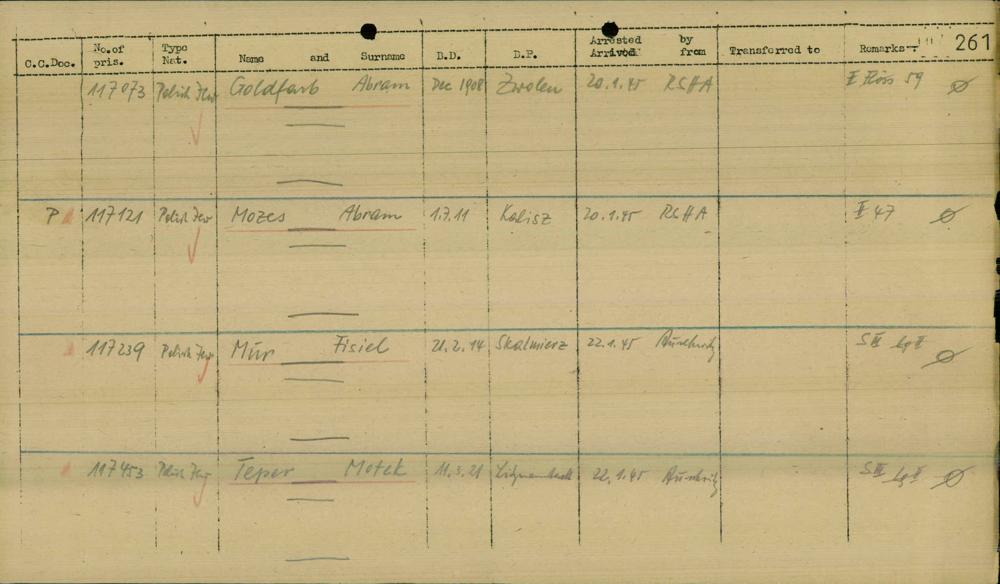 261
C.C.Doc. No.of pris. Type Nat. Name and Surname B.D. B.P. Arrested Arrived by from Transferred to Remarks
117073 Polish Jew Goldfarb Abram Dec 1908 Zwolen 20.1.45 RSHA 59
P 117121 Polish Jew Mozes Abram 1.7.11 Kalisz 20.1.45 RSHA II 47
117239 Polish Jew Mur Fisiel 21.2.14 Skalmierz 22.1.45 Auschwitz S III
117453 Polish Jew Teper Motek 11.3.21 Litzmannstadt 22.1.45 Auschwitz S III